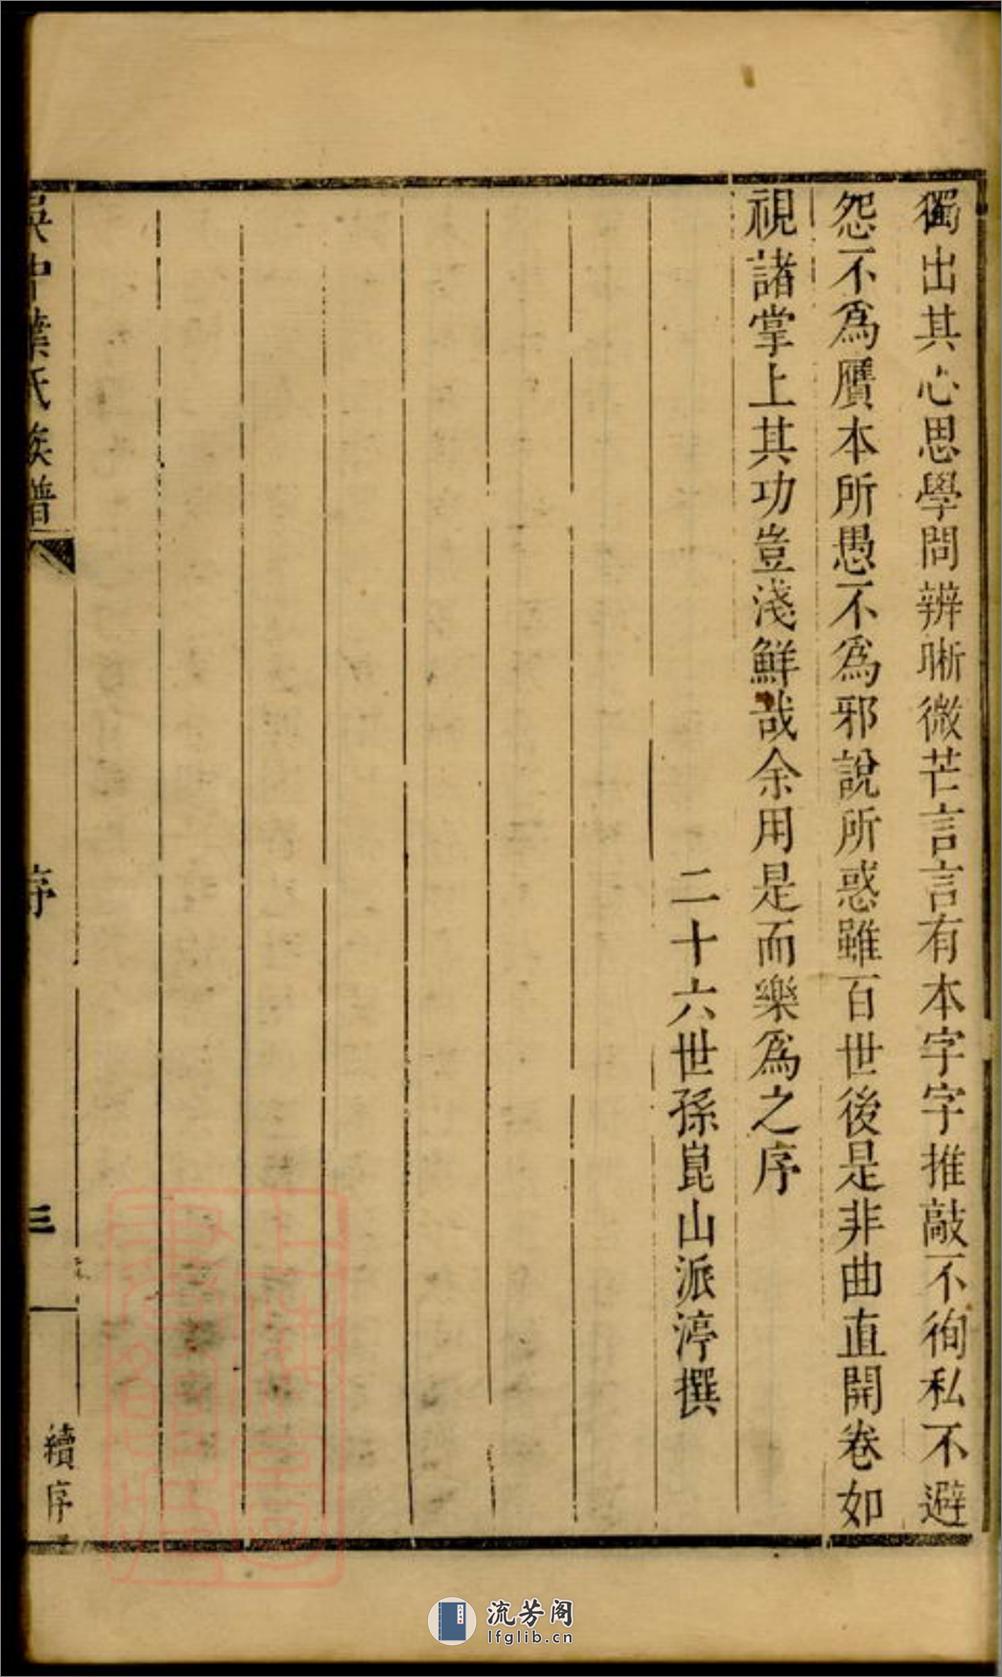 獨出其心思學問辨晰微芒言言有本字字推敲不徇私不避
怨不為贋本所愚不為邪說所惑雖百世後是非曲直開卷如
視諸掌上其功豈淺鮮哉余用是而樂為之序
二十六世孫崑山派渟撰
吳中葉氏族譜
序
三
續序
上海圖書館藏
流芳阁
lfglib.cn